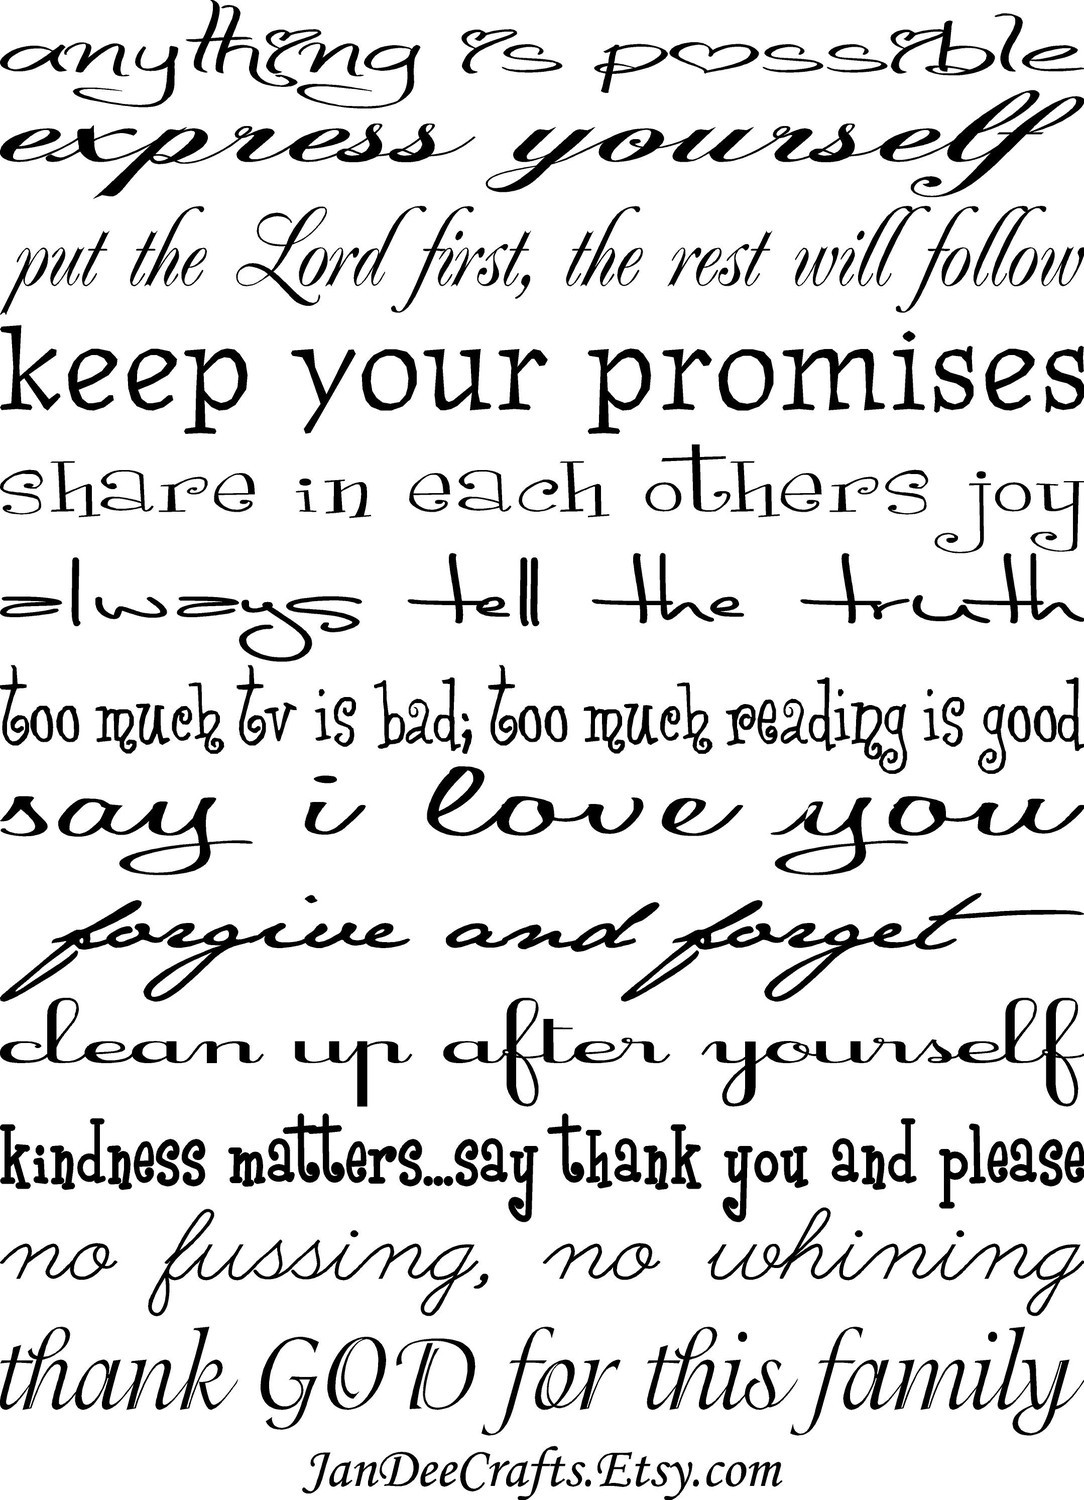 anything is possible
express yourself
put the Lord first, the rest will follow
keep your promises
share in each others joy
always tell the truth
too much tv is bad; too much reading is good
say i love you
forgive and forget
clean up after yourself
kindness matters...say thank you and please
no fussing, no whining
thank GOD for this family
JanDeeCrafts.Etsy.com